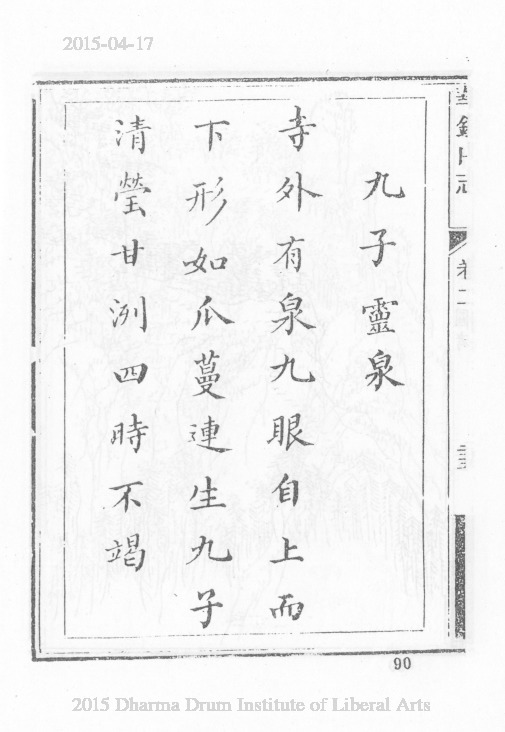 2015-04-17
九子靈泉
寺外有泉九眼自上而
下形如瓜蔓連生九子
清瑩甘洌四時不竭
卷二
90
2015 Dharma Drum Institute of Liberal Arts